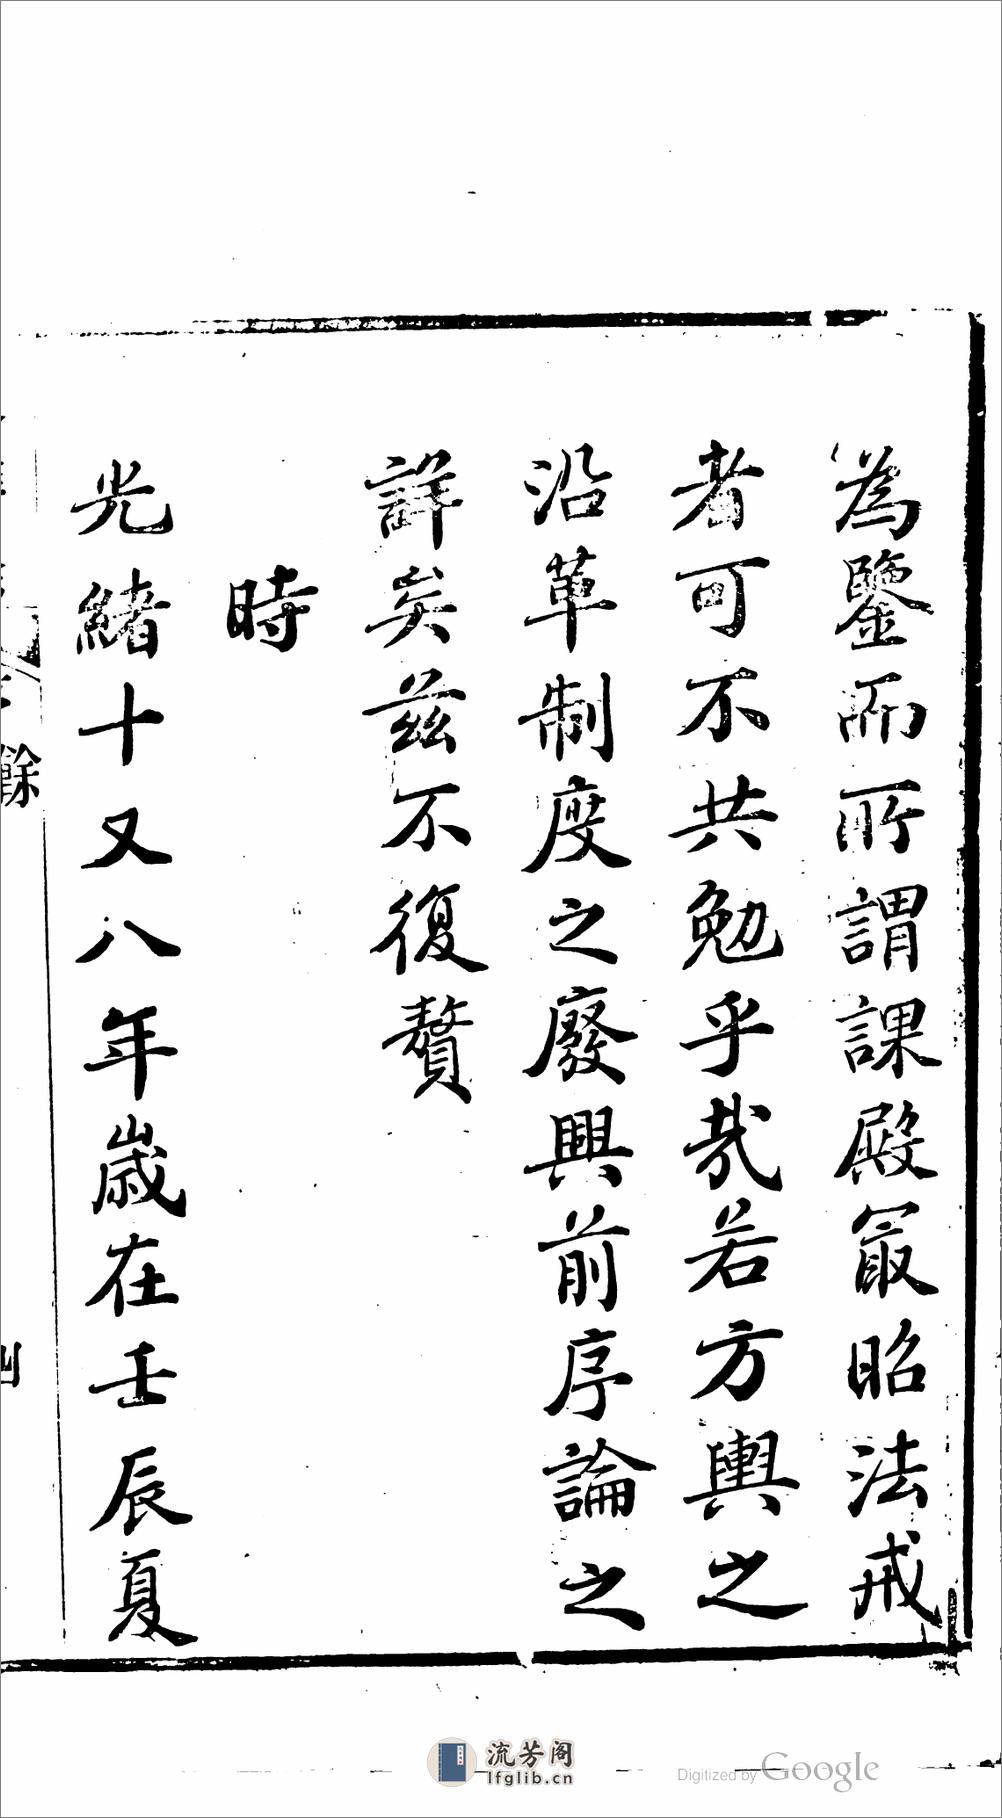 為鑒而所謂課殿㝡昭法戒
者可不共勉乎哉若方輿之
沿革制度之廢興前序論之
詳矣兹不復贅
時
光緒十又八年歲在壬辰夏
餘
流芳阁
lfglib.cn
Digitized by Google